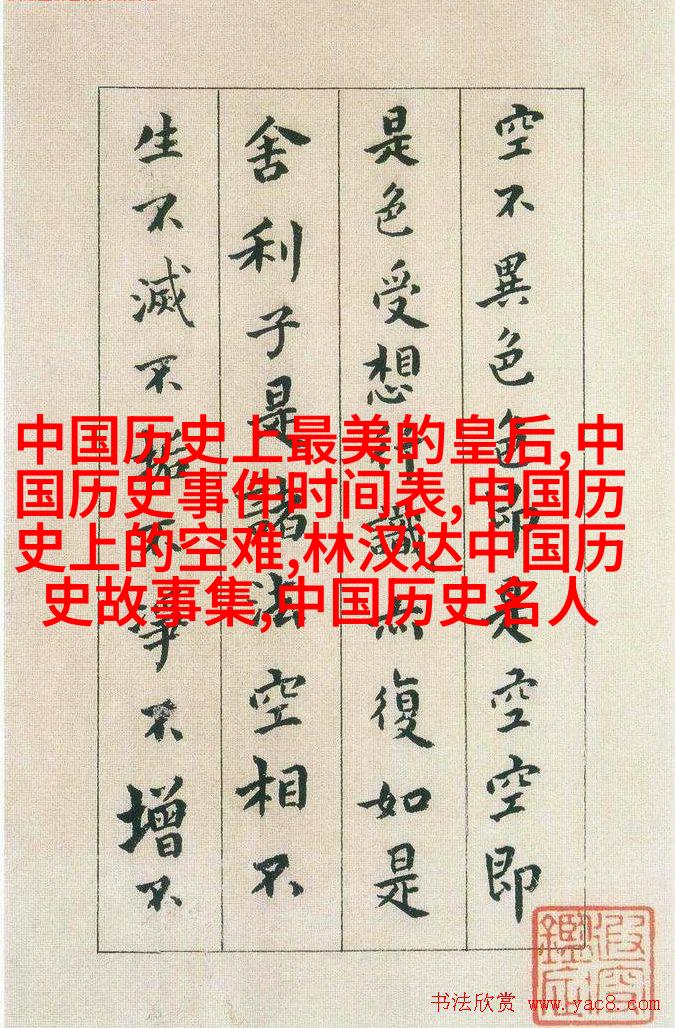 空不異色色即是空空即
是色受想行識亦復如是
舍利子是諸法空相不
生不滅不垢不淨不增不
中国历史上最美的皇后,中
国历史事件时间表,中国历
史上的空难,林汉达中国历
史故事集,中国历史名人
书法欣赏 www.yac8.com